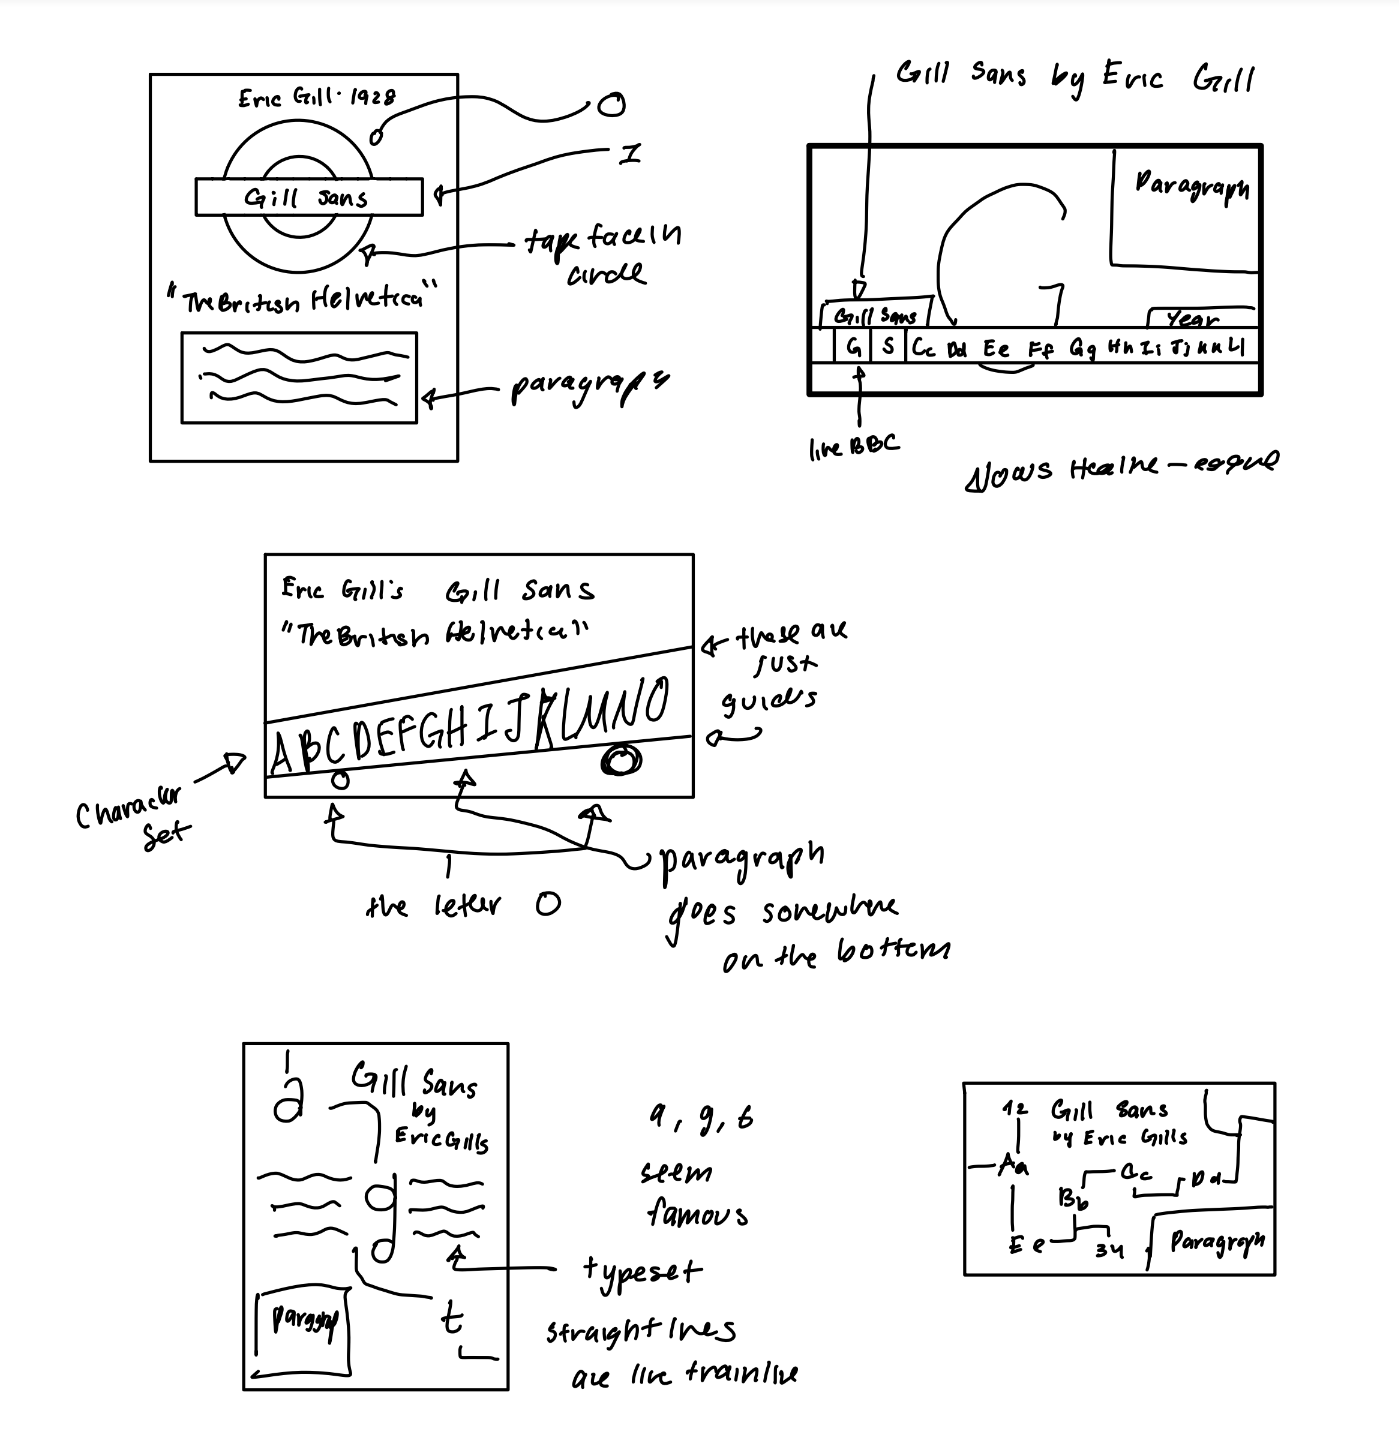 Eric Gill · 1928
O
I
Gill Sans
type face in
circle
"The British Helvetica"
paragraphs
Gill Sans by Eric Gill
Paragraph
Gill Sans
Year
G S Cc Dd Ee Ff Gg Hh Ii Jj Kk Ll
like BBC
News
Eric Gill's Gill Sans
"The British Helvetica"
these are
just
guides
ABCDEFGHIJKLMNO
Character
Set
the letter O
paragraph
goes somewhere
on the bottom
a
Gill Sans
by
Eric Gills
g
t
paragraph
a, g, t
seem
famous
typeset
straight lines
are like trainline
12 Gill Sans
by Eric Gills
Aa
Bb
Cc
Dd
Ee
34
Paragraph